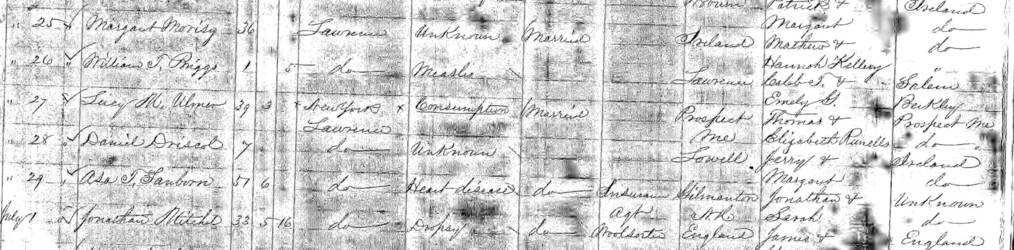 Woburn Patrick & Ireland
" 25 " Margaret Morisy 36 Lawrence Unknown Married Margaret do
Ireland Mathew & do
" 26 " William T. Briggs 1 5 do Measles Hannah Kelleey
Lawrence Caleb T. & Salem
" 27 " Lucy M. Ulmer 39 3 New York Consumption Married Emely G. Berkley
Lawrence Prospect Thomas & Prospect Me
" 28 " Daniel Driscol 7 do Unknown Me Elizabeth Runells do
Lowell Jerry & Ireland
" 29 " Asa T. Sanborn 51 6 do Heart disease do Margaret do
Insuran Gilmanton Jonathan & Unknown
July 1 Jonathan Mitchel 33 5 16 do Dropsy do Agt N.H. Sarah do
Woolsorter England James & England